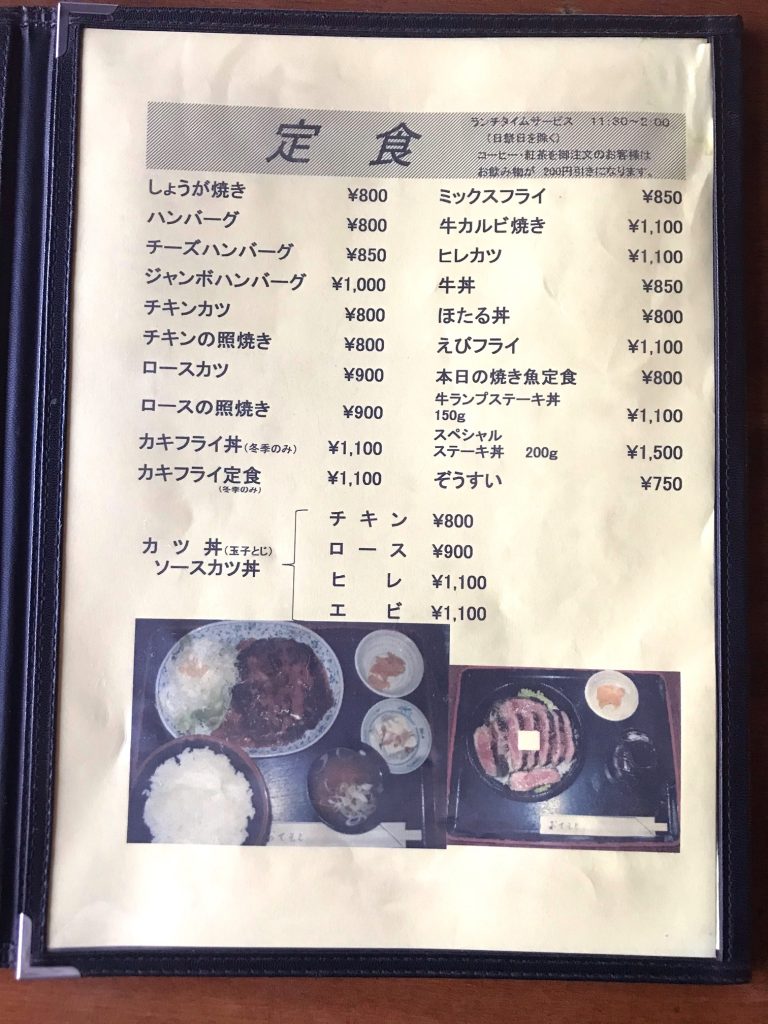 定食
ランチタイムサービス 11:30～2:00
（日祭日を除く）
コーヒー・紅茶を御注文のお客様は
お飲み物が 200円引きになります。
しょうが焼き ¥800
ハンバーグ ¥800
チーズハンバーグ ¥850
ジャンボハンバーグ ¥1,000
チキンカツ ¥800
チキンの照焼き ¥800
ロースカツ ¥900
ロースの照焼き ¥900
カキフライ丼（冬季のみ） ¥1,100
カキフライ定食 ¥1,100
（冬季のみ）
ミックスフライ ¥850
牛カルビ焼き ¥1,100
ヒレカツ ¥1,100
牛丼 ¥850
ほたる丼 ¥800
えびフライ ¥1,100
本日の焼き魚定食 ¥800
牛ランプステーキ丼
150g ¥1,100
スペシャル
ステーキ丼 200g ¥1,500
ぞうすい ¥750
カツ丼（玉子とじ）
ソースカツ丼
チキン ¥800
ロース ¥900
ヒレ ¥1,100
エビ ¥1,100
おてもと